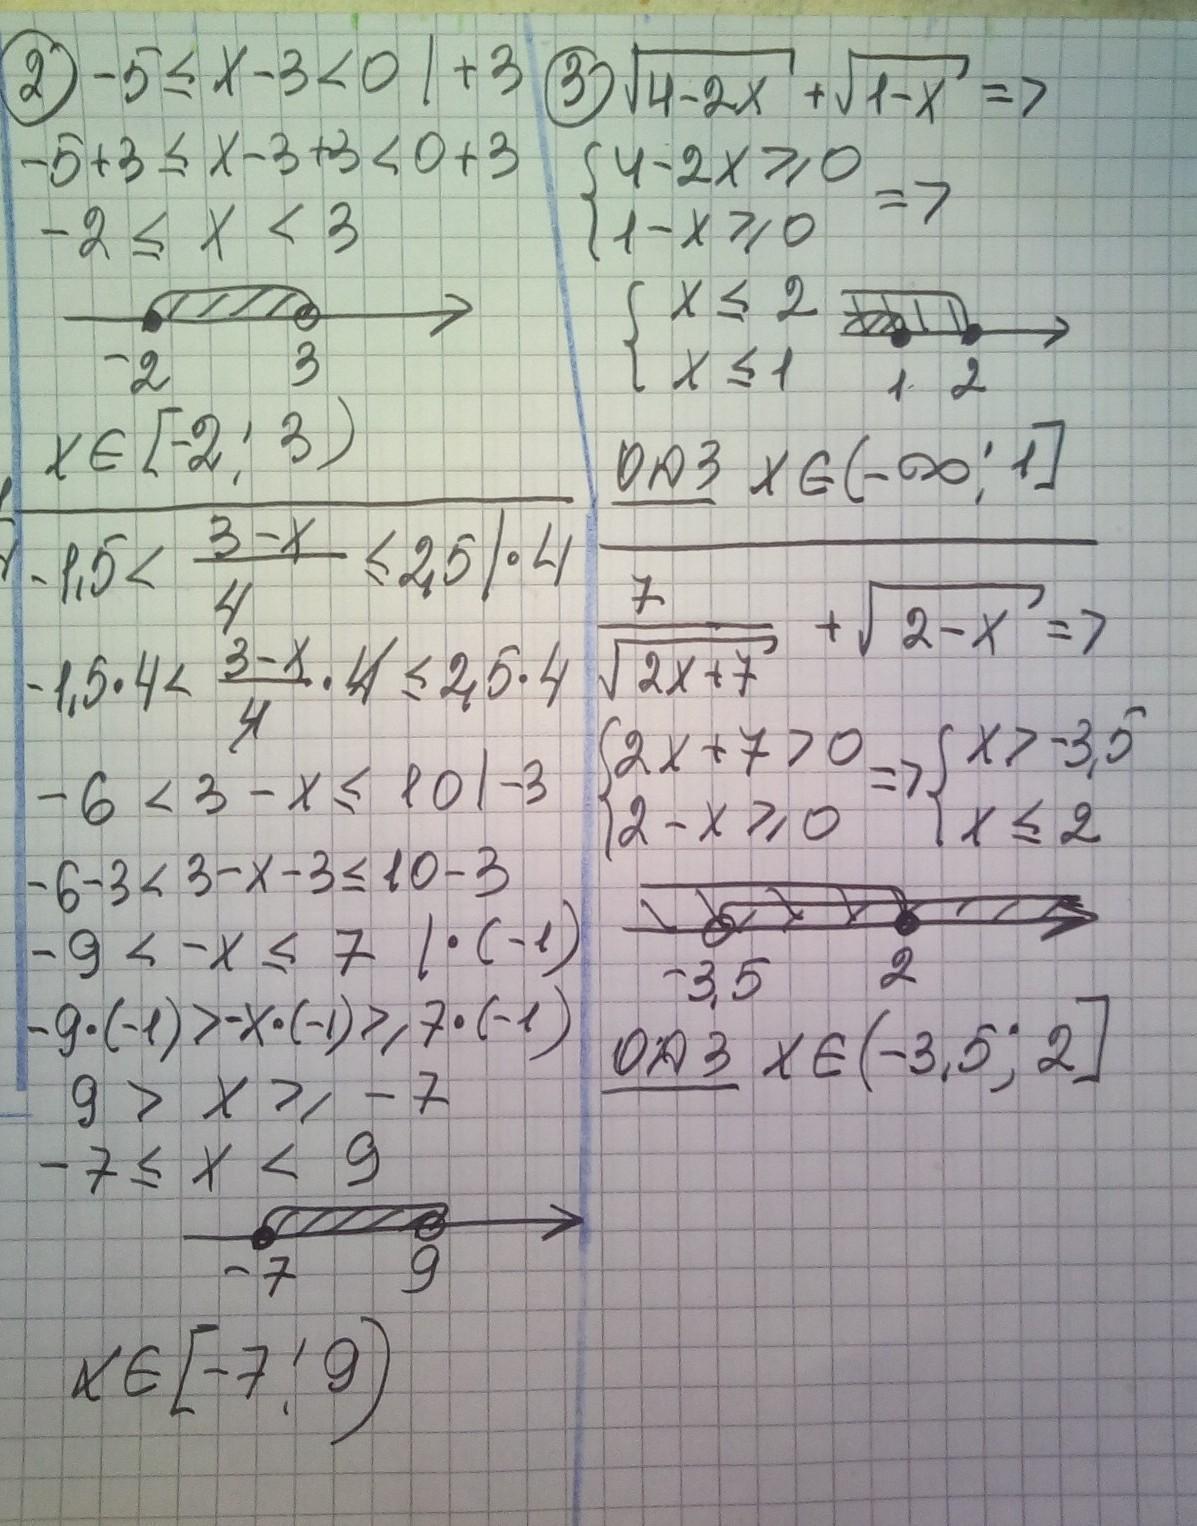 2) -5 ≤ x - 3 < 0 | +3
-5+3 ≤ x-3+3 < 0+3
-2 ≤ x < 3
-2 3
x∈[-2; 3)
-1,5 < (3-x)/4 ≤ 2,5 | ·4
-1,5·4 < (3-x)/4 · 4 ≤ 2,5·4
-6 < 3-x ≤ 10 | -3
-6-3 < 3-x-3 ≤ 10-3
-9 < -x ≤ 7 | ·(-1)
-9·(-1) > -x·(-1) ≥ 7·(-1)
9 > x ≥ -7
-7 ≤ x < 9
-7 9
x∈[-7; 9)
3) √(4-2x) + √(1-x) =>
{ 4-2x ≥ 0
{ 1-x ≥ 0 =>
{ x ≤ 2
{ x ≤ 1
1 2
ОДЗ x∈(-∞; 1]
7/√(2x+7) + √(2-x) =>
{ 2x+7 > 0 => { x > -3,5
{ 2-x ≥ 0 { x ≤ 2
-3,5 2
ОДЗ x∈(-3,5; 2]